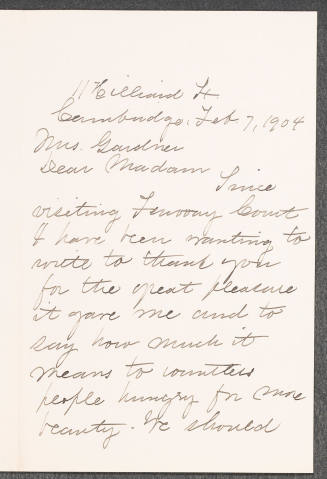 11 Hilliard St
Cambridge, Feb. 7, 1904
Mrs. Gardner
Dear Madam
Since
visiting Fenway Court
I have been wanting to
write to thank you
for the great pleasure
it gave me and to
say how much it
means to countless
people hungry for more
beauty. We should